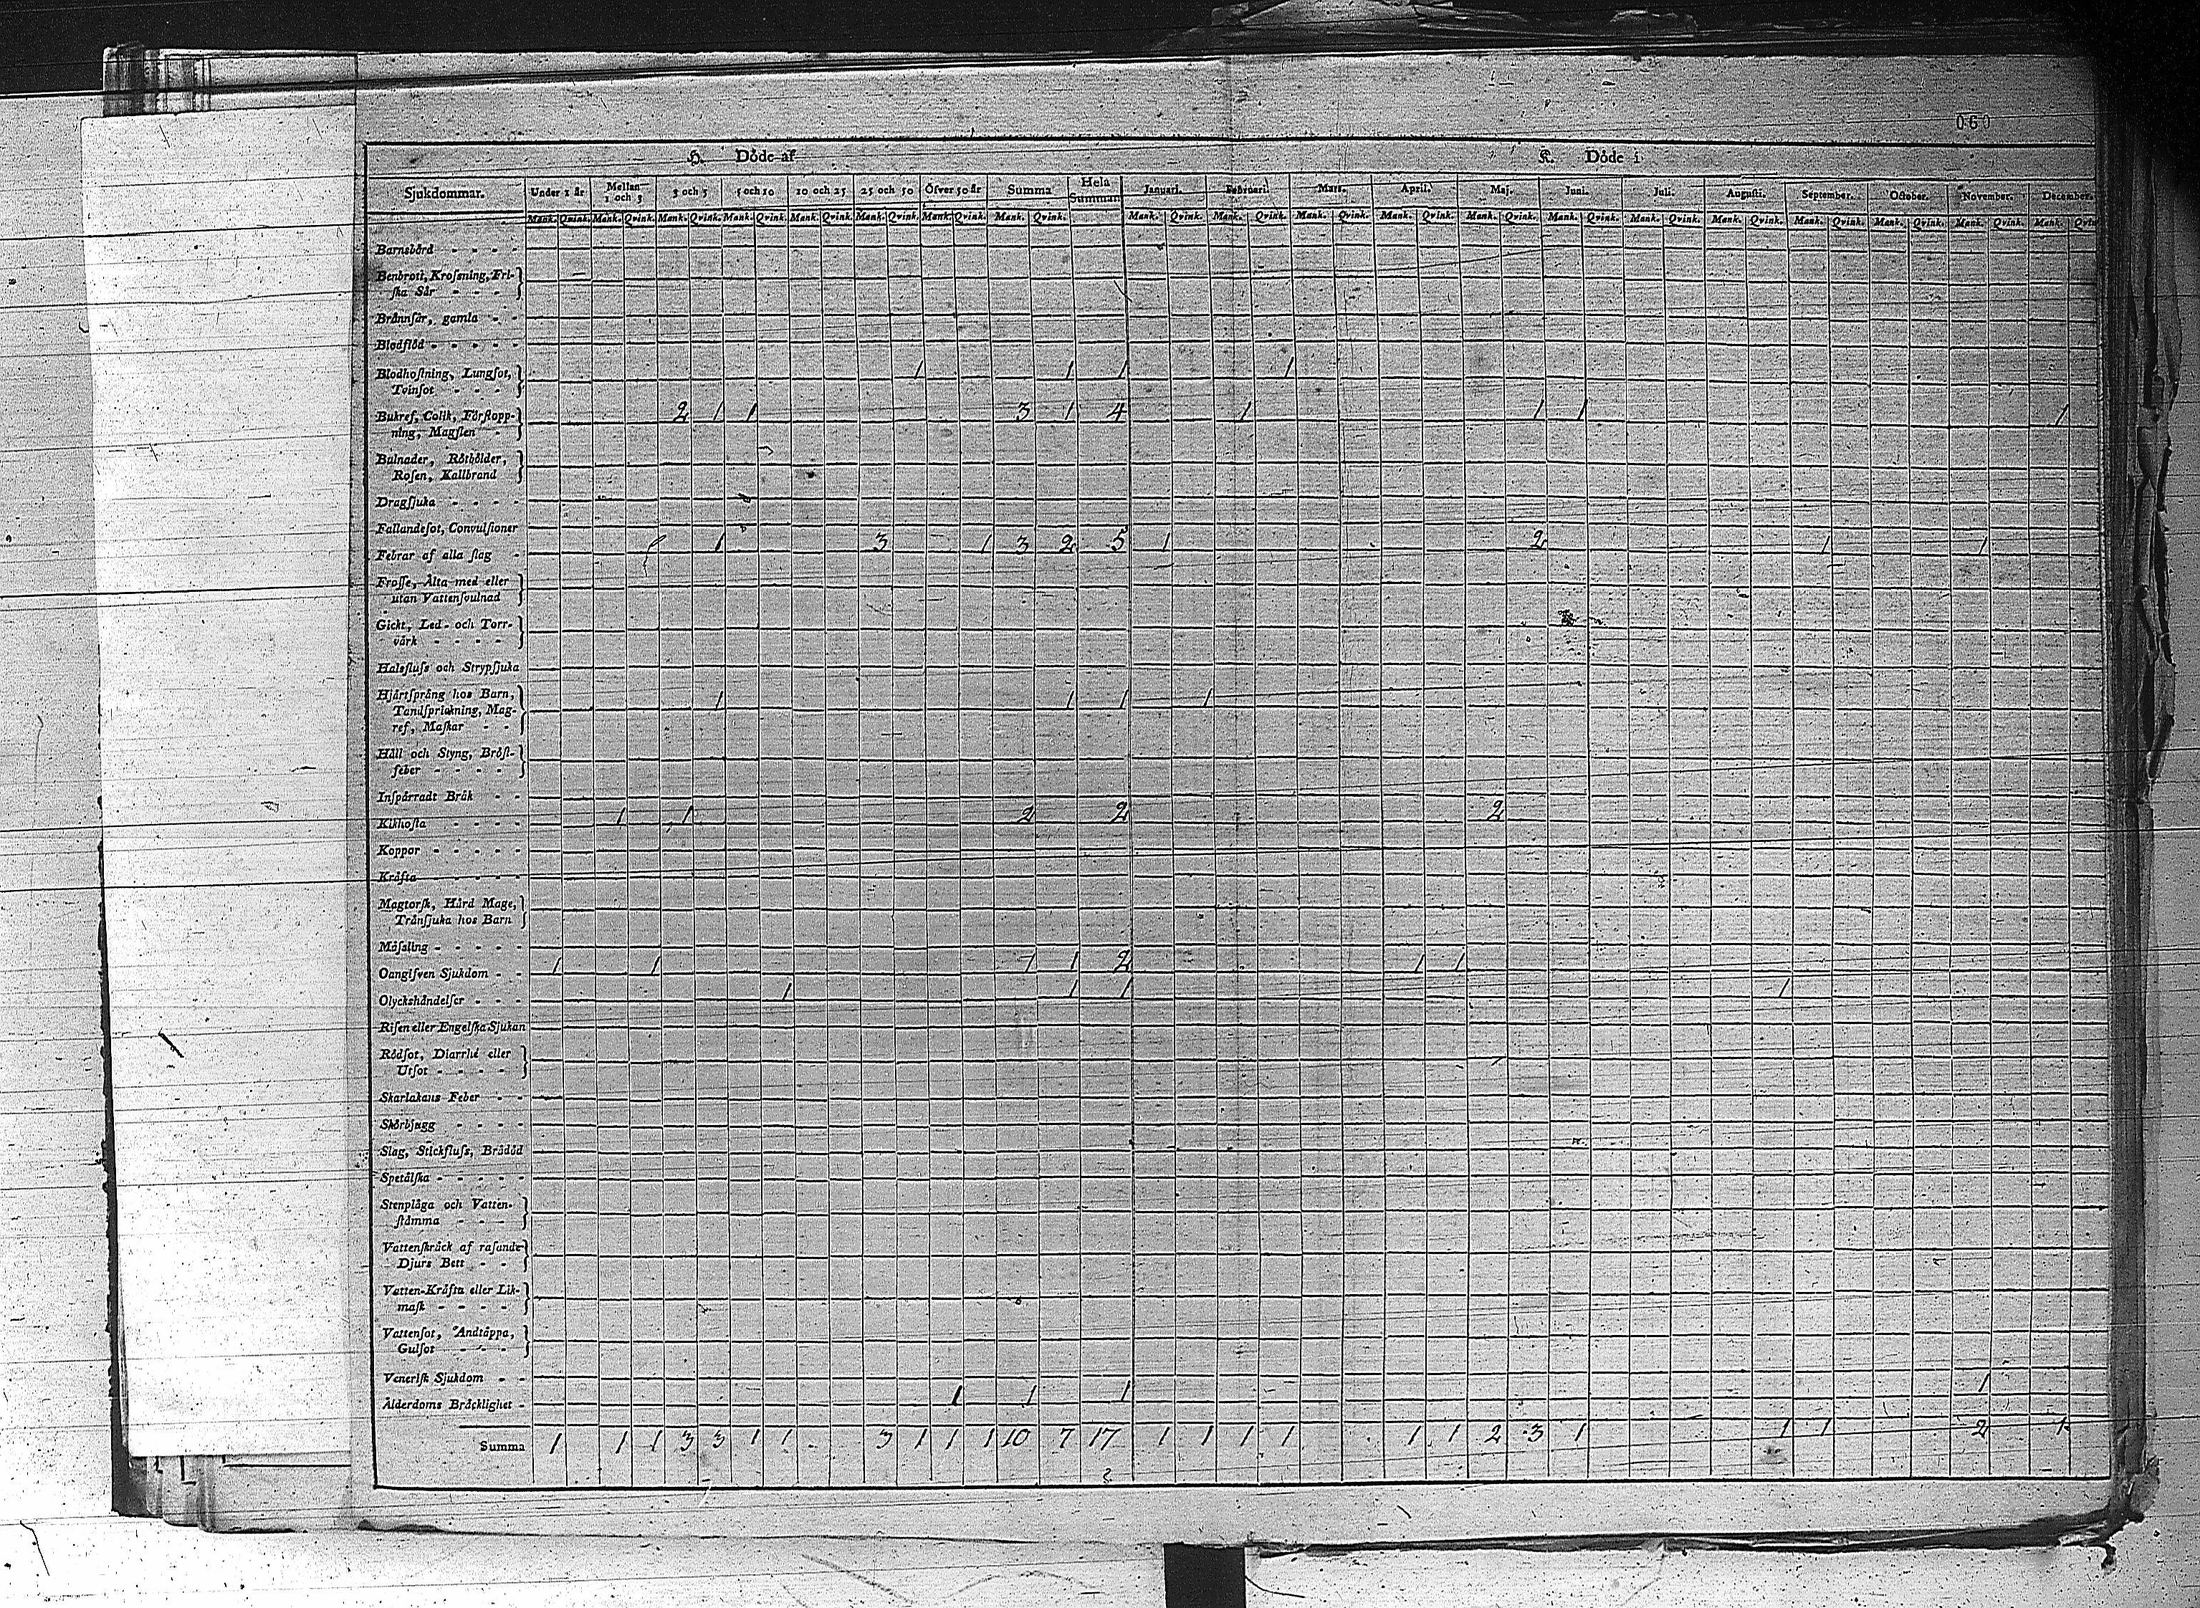 060
H. Döde af
K. Döde i
Sjukdommar. Under 1 år Mellan 1 och 3 3 och 5 5 och 10 10 och 25 25 och 50 Öfver 50 år Summa Hela Summan. Januari. Februari. Mars. April. Maj. Juni. Juli. Augusti. September. October. November. December.
Mank. Qvink. Mank. Qvink. Mank. Qvink. Mank. Qvink. Mank. Qvink. Mank. Qvink. Mank. Qvink. Mank. Qvink. Mank. Qvink. Mank. Qvink. Mank. Qvink. Mank. Qvink. Mank. Qvink. Mank. Qvink. Mank. Qvink. Mank. Qvink. Mank. Qvink. Mank. Qvink. Mank. Qvink. Mank. Qvin
Barnsbörd - - - -
Benbrott, Krossning, Fri-
ska Sår - - -
Brännsår, gamla - -
Blodflöd - - - - -
Blodhostning, Lungsot, 1 1 1 1
Tvinsot - - -
Bukref, Colik, Förstopp- 2 1 1 3 1 4 1 1 1 1
ning, Magsten -
Bulnader, Rötbölder,
Rosen, Kallbrand
Dragsjuka - - - -
Fallandesot, Convulsioner
Febrar af alla slag - 1 3 1 3 2 5 1 2 1 1
Frosse, Älta med eller
utan Vattensvulnad
Gickt, Led- och Torr-
värk - - - -
Halsfluss och Strypsjuka
Hjärtsprång hos Barn, 1 1 1 1
Tandsprickning, Mag-
ref, Maskar - -
Håll och Styng, Bröst-
feber - - - -
Inspärradt Bråk - -
Kikhosta - - - - 1 1 2 2 2
Koppor - - - - -
Kräfta - - - - -
Magtorsk, Hård Mage,
Tränsjuka hos Barn
Mässling - - - - -
Oangifven Sjukdom - - 1 1 1 1 2 1 1
Olyckshändelser - - - 1 1 1 1
Risen eller Engelska Sjukan
Rödsot, Diarrhé eller
Utsot - - - -
Skarlakans Feber - -
Skörbjugg - - - -
Slag, Stickfluss, Brådöd
Spetälska - - - - -
Stenplåga och Vatten-
stämma - - -
Vattenskräck af rasande
Djurs Bett - -
Vatten-Kräfta eller Lik-
mask - - - -
Vattensot, Andtäppa,
Gulsot - - - -
Venerisk Sjukdom - -
Ålderdoms Bräcklighet - 1 1 1 1
Summa 1 1 1 3 3 1 1 3 1 1 1 10 7 17 1 1 1 1 1 1 2 3 1 1 1 2 1